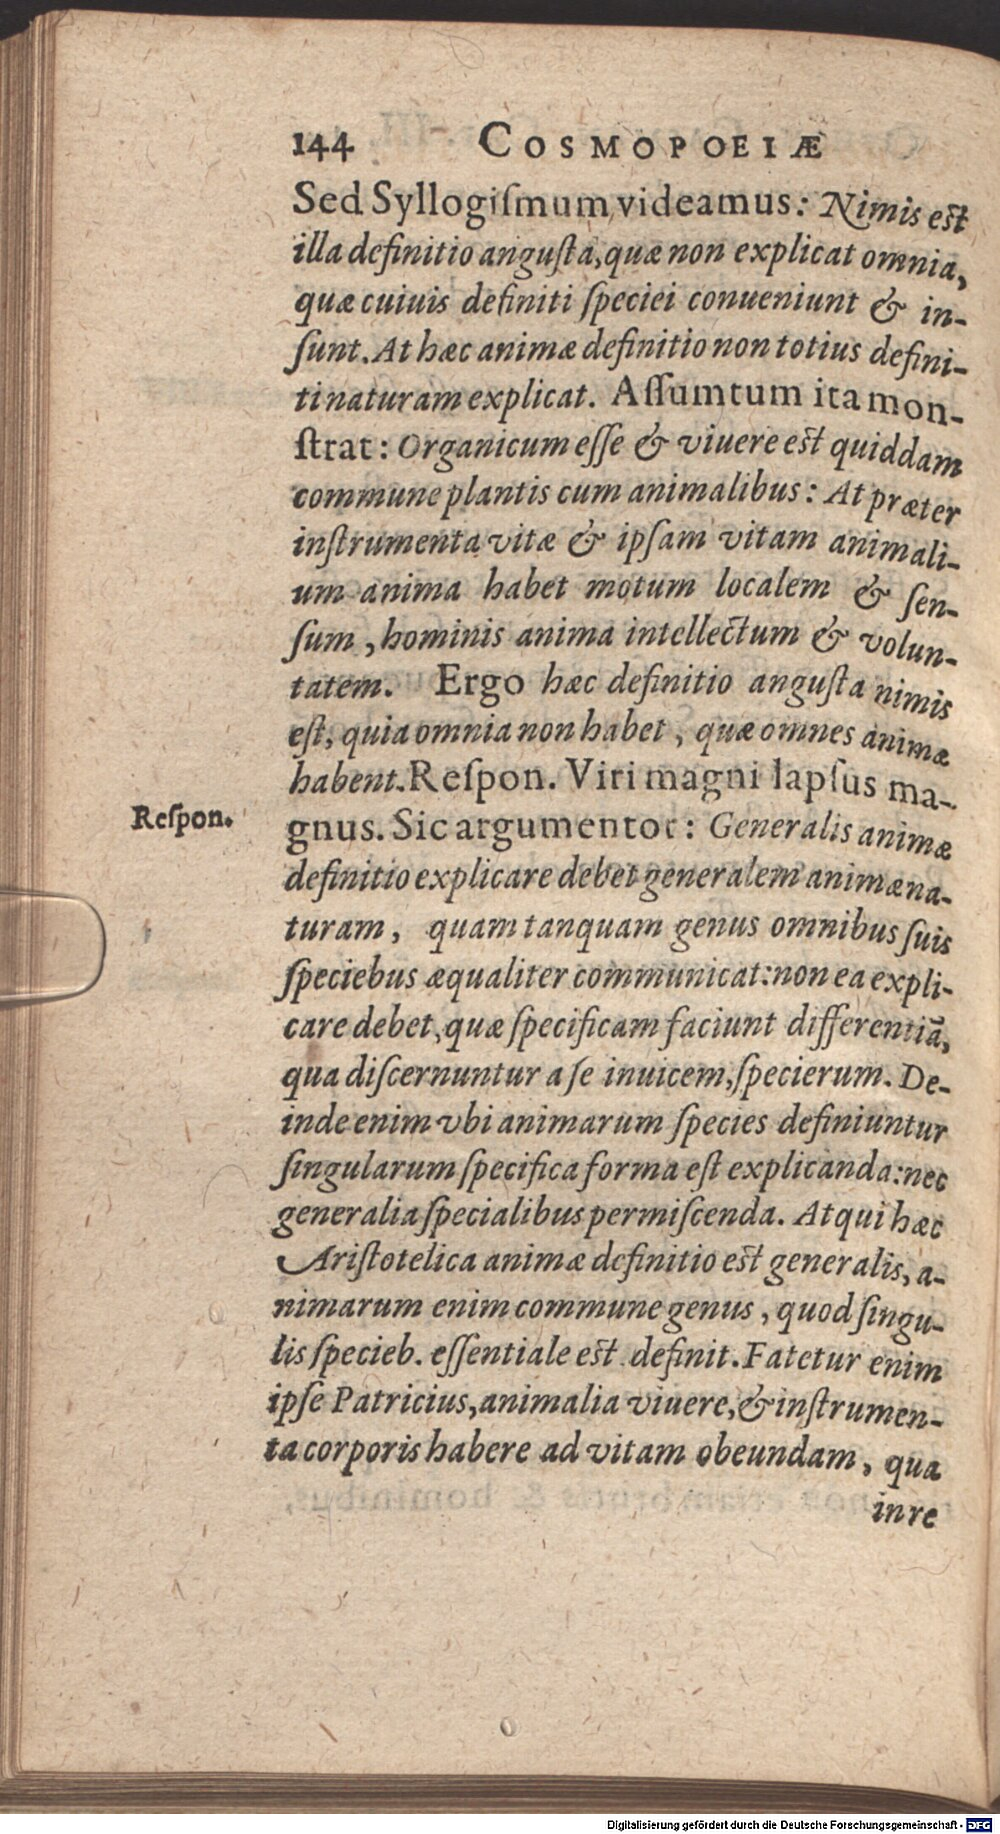 144 COSMOPOEIÆ
Sed Syllogiſmum videamus: Nimis eſt
illa definitio anguſta, quæ non explicat omnia,
quæ cuiuis definiti ſpeciei conueniunt & in-
ſunt. At hæc animæ definitio non totius defini-
ti naturam explicat. Aſſumtum ita mon-
ſtrat: Organicum eſſe & viuere eſt quiddam
commune plantis cum animalibus: At præter
inſtrumenta vitæ & ipſam vitam animali-
um anima habet motum localem & ſen-
ſum, hominis anima intellectum & volun-
tatem. Ergo hæc definitio anguſta nimis
eſt, quia omnia non habet, quæ omnes animæ
habent. Reſpon. Viri magni lapſus ma-
Reſpon.
gnus. Sic argumentor: Generalis animæ
definitio explicare debet generalem animæ na-
turam, quam tanquam genus omnibus ſuis
ſpeciebus æqualiter communicat: non ea expli-
care debet, quæ ſpecificam faciunt differentiā,
qua diſcernuntur a ſe inuicem, ſpecierum. De-
inde enim vbi animarum ſpecies definiuntur
ſingularum ſpecifica forma eſt explicanda: nec
generalia ſpecialibus permiſcenda. Atqui hæc
Ariſtotelica animæ definitio eſt generalis, a-
nimarum enim commune genus, quod ſingu-
lis ſpecieb. eſſentiale eſt definit. Fatetur enim
ipſe Patricius, animalia viuere, & inſtrumen-
ta corporis habere ad vitam obeundam, qua
in re
Digitalisierung gefördert durch die Deutsche Forschungsgemeinschaft - DFG